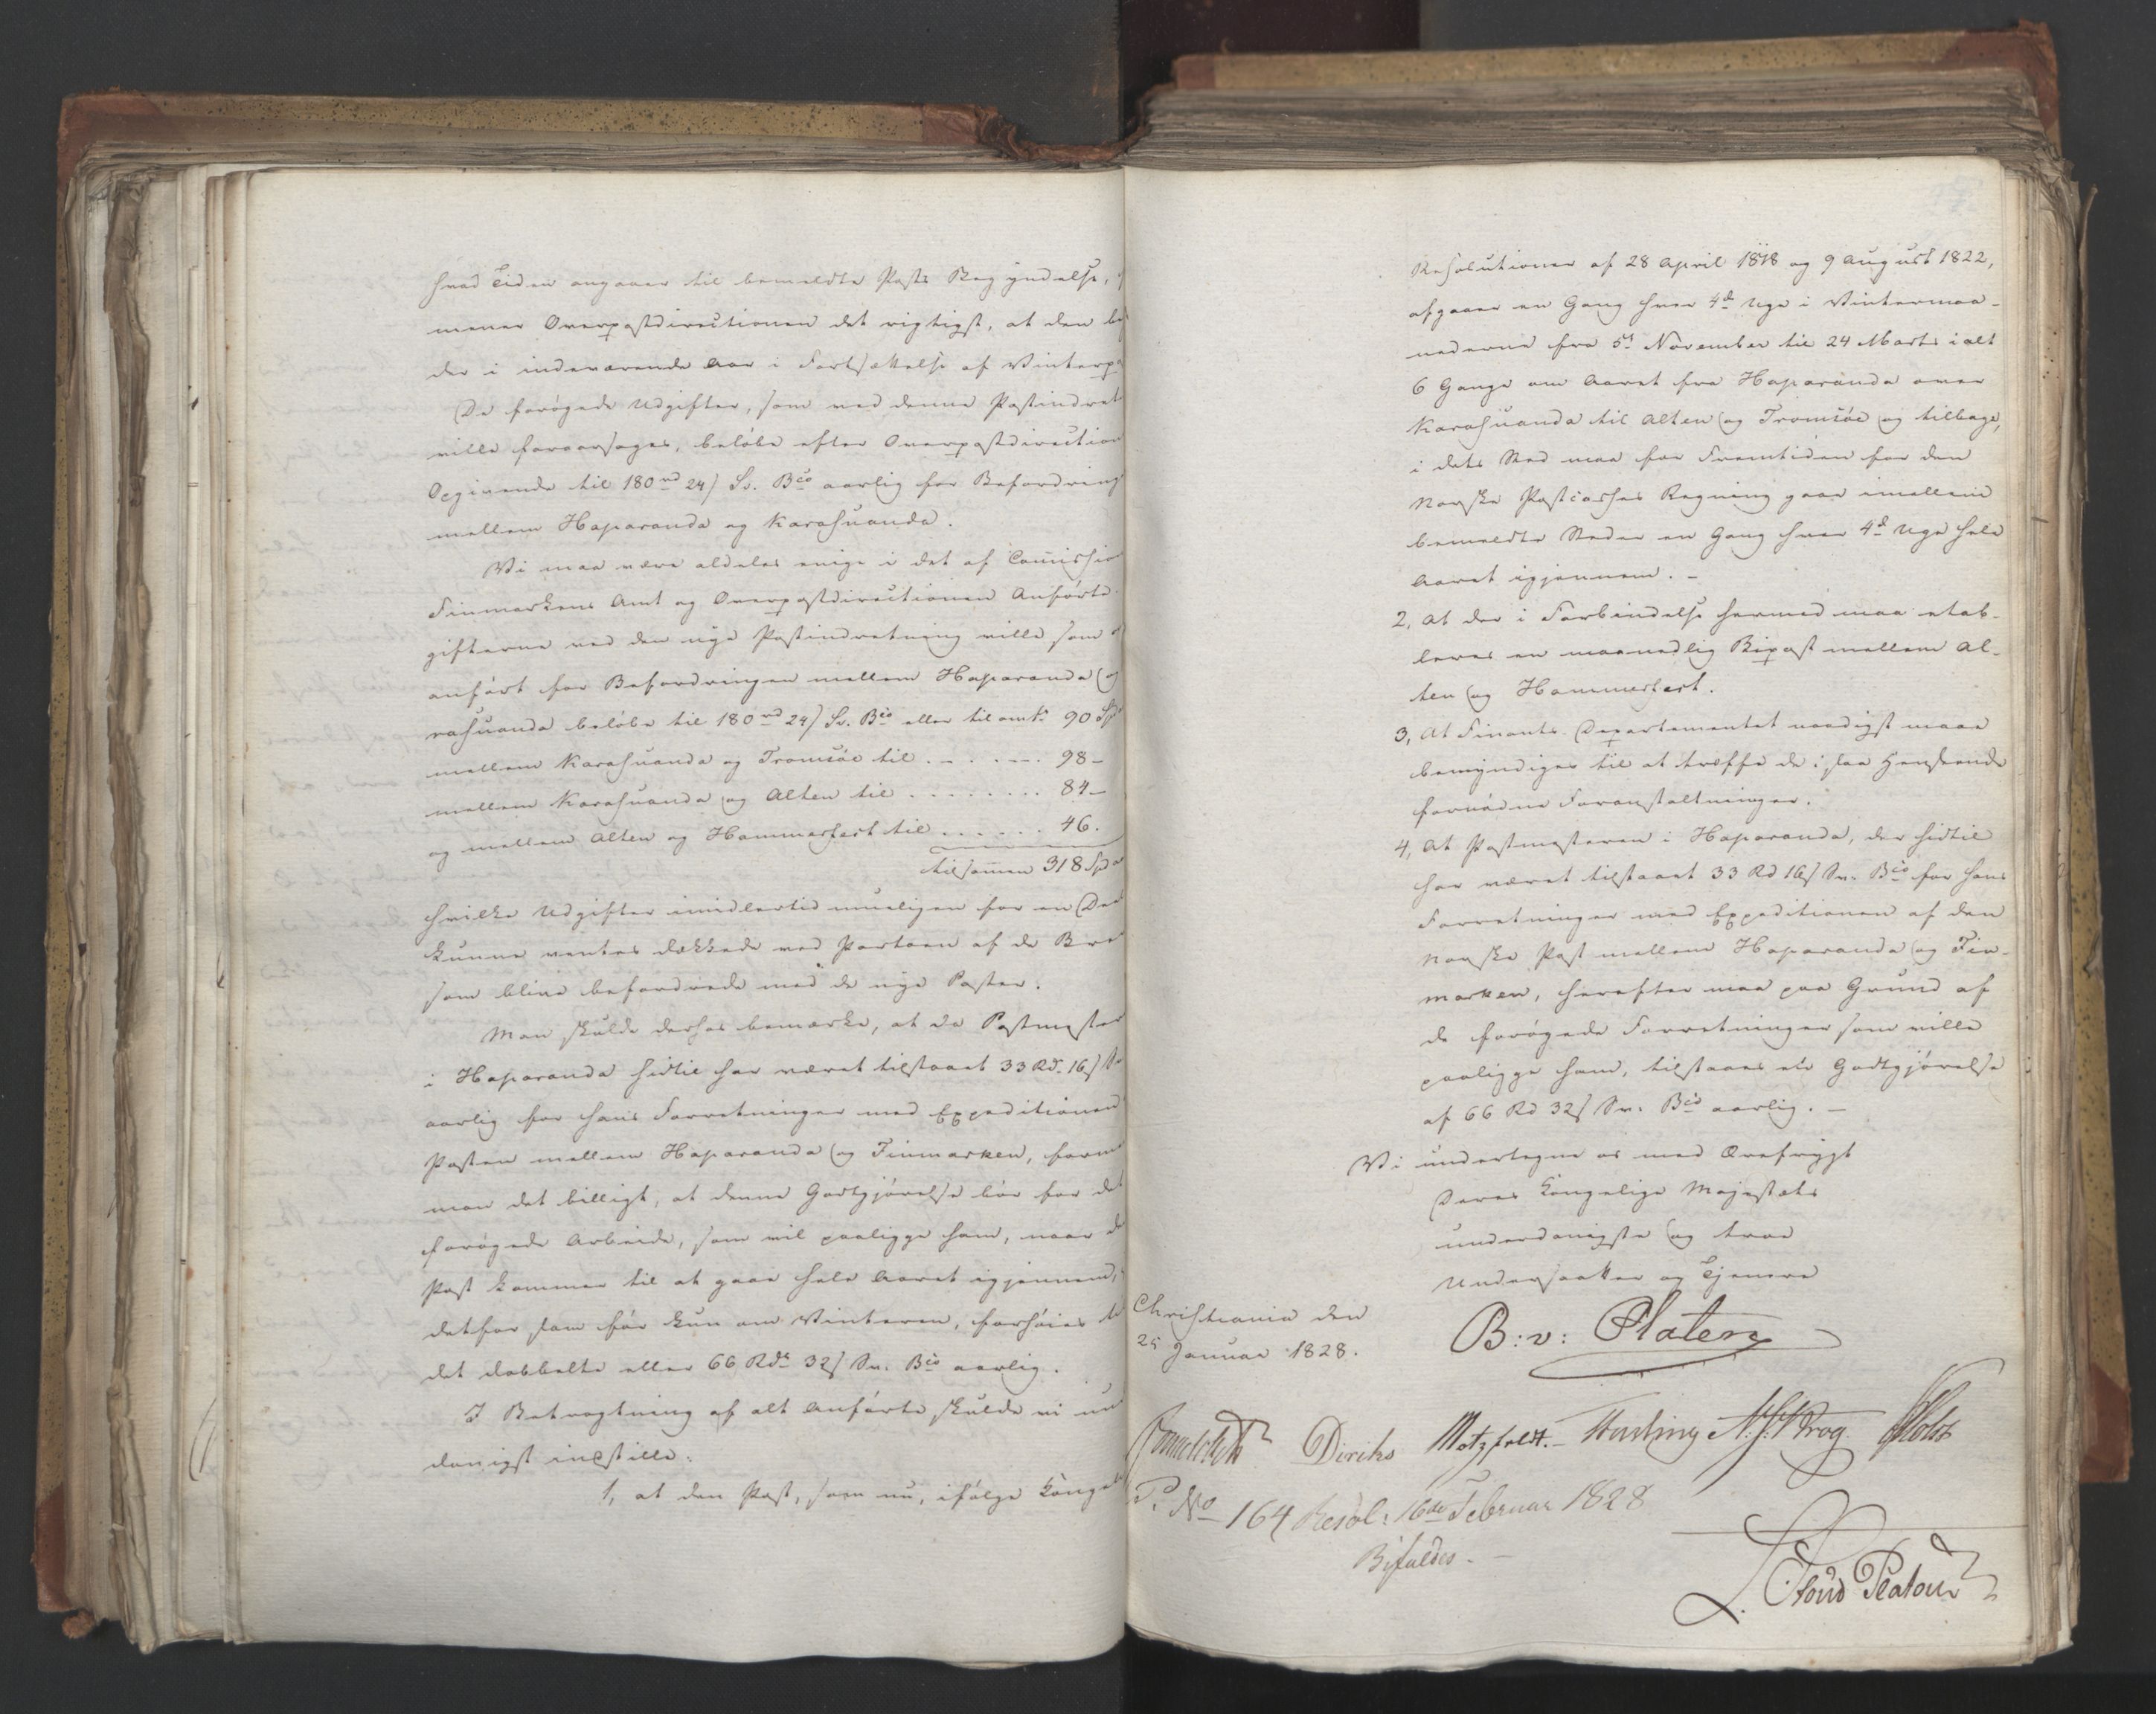 hvad Tiden angaaer til bemeldte Posts Begyndelse,
mener Overpostdirectionen det rigtigst, at den be
der i indeværende Aar i Fortsættelse af Vinterpo
De forøgede Udgifter, som ved denne Postindret
ville foraarsages, beløbe efter Overpostdirection
Opgivende til 180 rd 24 s Sv. Bco aarlig for Befordring
mellem Haparanda og Karasuanda.
Vi maa være aldeles enige i det af Comissio
Finmarkens Amt og Overpostdirectionen Anførte
gifterne ved den nye Postindretning ville som
anført for Befordringen mellem Haparanda og
rasuanda beløbe til 180 rd 24 s Sv. Bco eller til omtr 90 Spd
mellem Karasuanda og Tromsöe til . - . . - . 98 -
mellem Karasuanda og Alten til . . . . . . . . 84 -
og mellem Alten og Hammerfest til . . . . . . 46.
tilsammen 318 Spd
hvilke Udgifter imidlertid mueligen for en Deel
kunne ventes dækkede ved Portoen af de Bre
som blive befordrede med de nye Poster.
Man skulde derhos bemærke, at da Postmester
i Haparanda hidtil har været tilstaaet 33 Rd. 16 s Sv
aarlig for hans Forretninger med Expeditionen
Posten mellem Haparanda og Finmarken, forme
man det billigt, at denne Godtgjørelse bør for det
forøgede Arbeide, som vil paaligge ham, naar de
Post kommer til at gaae hele Aaret igjennem,
detfor som før kun om Vinteren, forhøies til
det dobbelte eller 66 Rdr 32 s Sv. Bco aarlig.
I Betragtning af alt Anførte skulde vi un
danigst indstille:
1, at den Post, som nu, ifølge Konge
Resolutioner af 28 April 1818 og 9 August 1822,
afgaaer en Gang hver 4de Uge i Vintermaa-
nederne fra 5te November til 24 Marts i alt
6 Gange om Aaret fra Haparanda over
Karasuanda til Alten og Tromsöe og tilbage,
i dets Sted maa for Fremtiden for den
Norske Postcasses Regning gaae imellem
bemeldte Steder en Gang hver 4de Uge hele
Aaret igjennem. -
2, At der i Forbindelse hermed maa etab-
leres en maanedlig Bipost mellem Al-
ten og Hammerfest.
3, At Finants-Departementet naadigst maae
bemyndiges til at træffe de i saa Henseende
fornødne Foranstaltninger.
4, At Postmesteren i Haparanda, der hidtil
har været tilstaaet 33 Rd 16 s Sv. Bco for hans
Forretninger med Expeditionen af den
norske Post mellem Haparanda og Fin-
marken, herefter maa paa Grund af
de forøgede Forretninger som ville
paaligge ham, tilstaaes en Godtgjørelse
af 66 Rd 32 s Sv. Bco aarlig. -
Vi undertegne os med Ærefrygt
Deres Kongelige Majestæts
underdanigste og troe
Undersaatter og Tjenere
Christiania den
25 Januar 1828.
B: v: Platen
Diriks Motzfeldt. - N. J. Krog Holst
P. No 164 Resol: 16de Februar 1828
Bifaldes. -